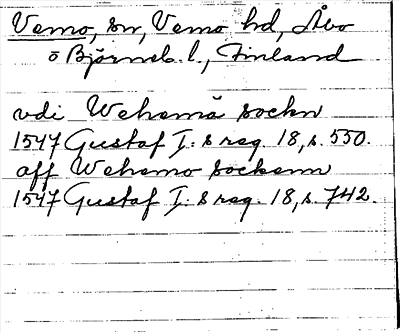 Vemo, sn, Vemo hd, Åbo
o Björneb. l., Finland
vdi Wehemå sockn
1547 Gustaf I:s reg. 18, s. 550.
aff Wehemo sockenn
1547 Gustaf I:s reg. 18, s. 742.